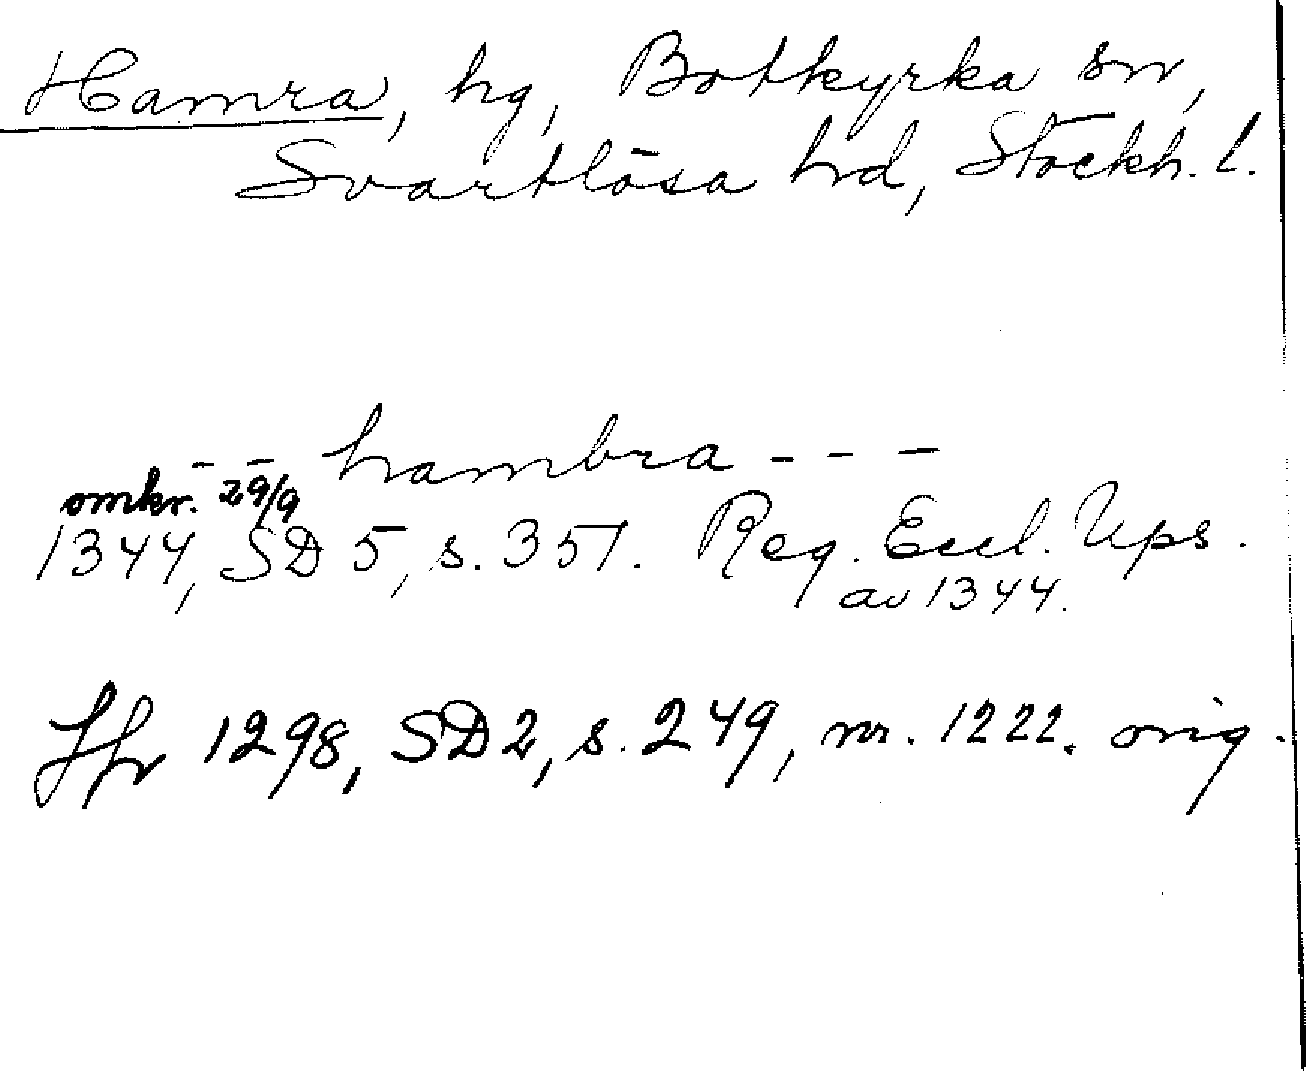 Hamra, hg, Botkyrka sn,
Svartlösa hd, Stockh. l.
- - hambra - - -
omkr. 29/9
1344, SD 5, s. 351. Reg. Eccl. Ups.
av 1344.
Jfr 1298, SD 2, s. 249, nr. 1222. orig.